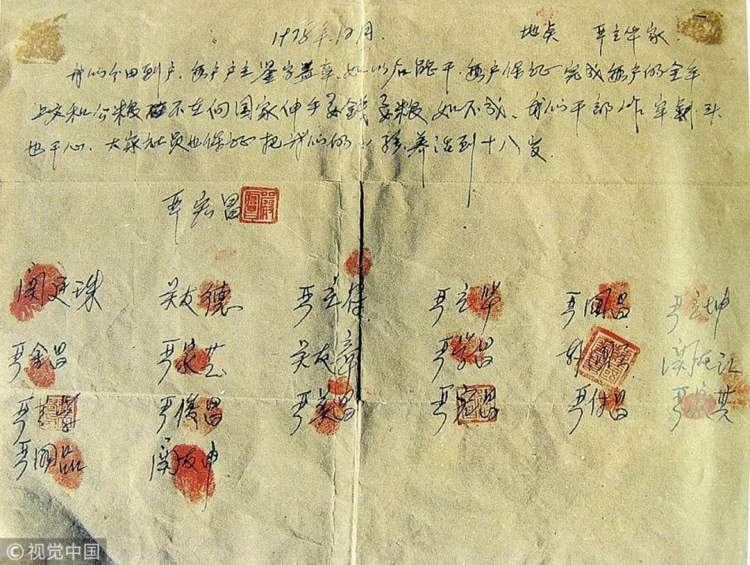 1978年12月. 地点 严立华家.
我们分田到户,每户户主签字盖章,如以后能干,每户保证完成每户的全年
上交和公粮 不在向国家伸手要钱要粮,如不成,我们干部作牢刹头
也干心,大家社员也保证把我们的小孩养活到十八岁.
严宏昌
关廷珠 关友德 严立符 严立华 严国昌 严立坤
严金昌 严家芝 关友章 严学昌 韩国云 关友江
严立学 严俊昌 严美昌 严宏昌 严付昌 严家其
严国品 关友申
©视觉中国